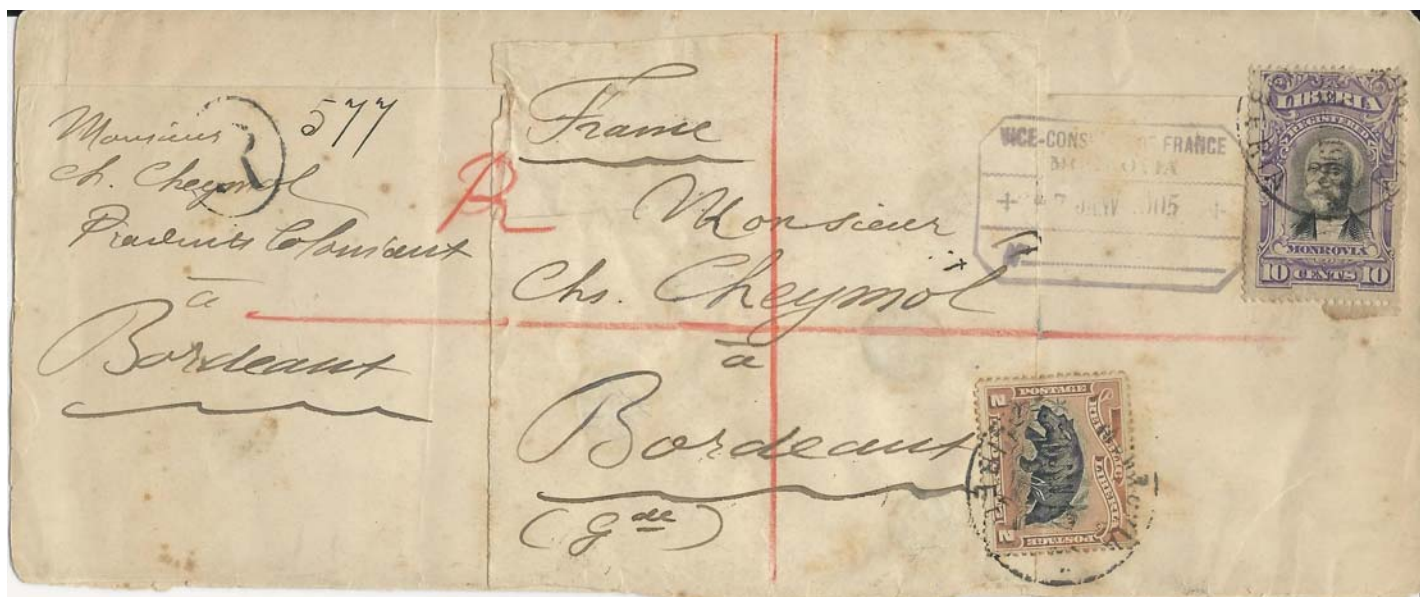 577
R
Monsieur
Ch. Cheymol
Produits Coloniaux
à
Bordeaux
R
France
Monsieur
Chs. Cheymol
à
Bordeaux
(Gde)
VICE-CONS DE FRANCE
MONROVIA
JANV 1905
LIBERIA
REGISTERED
MONROVIA
10 CENTS 10
POSTAGE
REPUBLIC
LIBERIA
POSTAGE
2 2